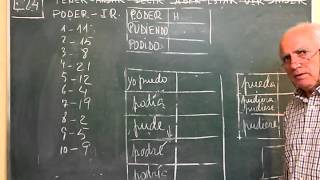 24
TENER-HABER-DECIR-SABER-ESTAR-VER-HACER
PODER-IR.
PODER H
PUDIENDO
PODIDO
1-11
2-15
3-8
4-21
5-12
6-4
7-19
8-2
9-5
10-9
yo puedo
podía
pude
podré
podría
pueda
pudiera
pudiese
pudiere